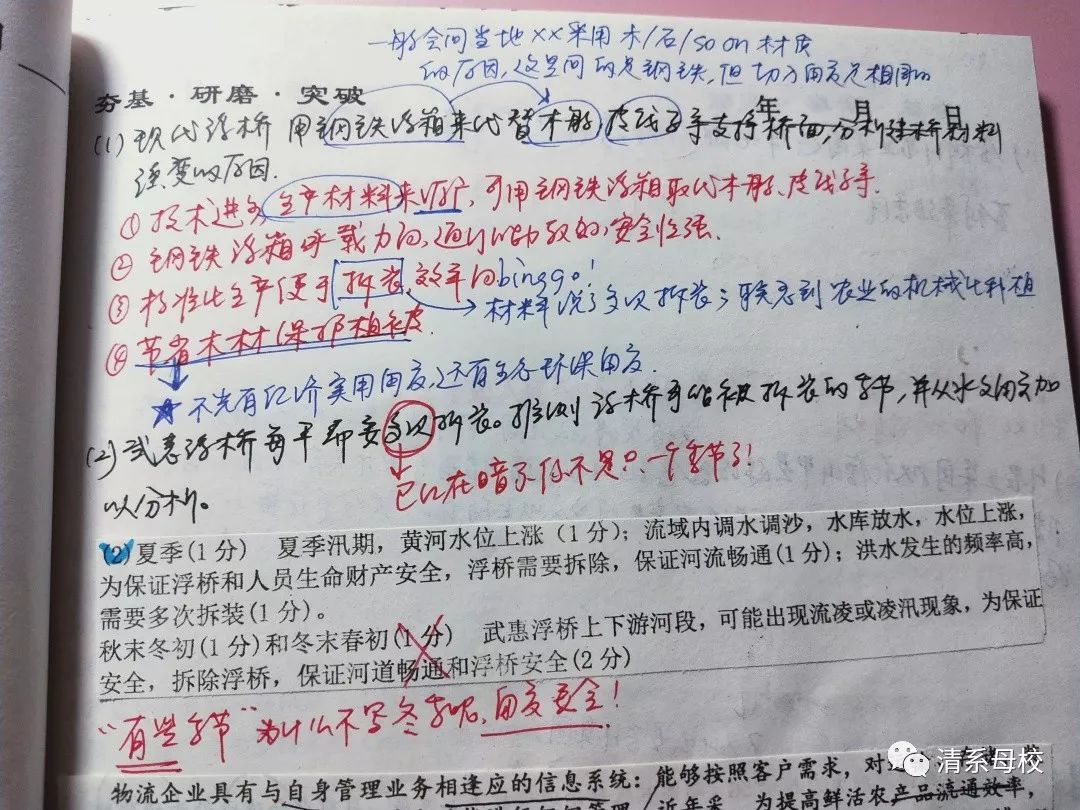 一般会问当地××采用木/石/so on 材质
的原因,这里问的是钢铁,但切入角度是相同的
夯基·研磨·突破
年 月 日
(1)现代浮桥用钢铁浮箱来代替木船,皮筏子等支撑桥面,分析建桥材料
演变的原因.
①技术进步,生产材料来源广,可用钢铁浮箱取代木船、皮筏子等.
②钢铁浮箱承载力高,通行能力较高,安全性强.
③标准化生产便于拆装,效率高binggo!
→材料说了多次拆装;联想到农业的机械化种植
④节省木材保护植被.
★不光有经济实用角度,还有生态环保角度.
(2)武惠浮桥每年都要多次拆装。推测该桥可能被拆装的季节,并从水文角度加
以分析。
已经在暗示你不是只一个季节了!
(2)夏季(1分) 夏季汛期,黄河水位上涨(1分);流域内调水调沙,水库放水,水位上涨,
为保证浮桥和人员生命财产安全,浮桥需要拆除,保证河流畅通(1分);洪水发生的频率高,
需要多次拆装(1分)。
秋末冬初(1分)和冬末春初(1分) 武惠浮桥上下游河段,可能出现流凌或凌汛现象,为保证
安全,拆除浮桥,保证河道畅通和浮桥安全(2分)
“有些季节”为什么不写冬季呢,角度要全!
物流企业具有与自身管理业务相逢应的信息系统:能够按照客户需求,对
近年采 为提高鲜活农产品流通效率,
清系母校